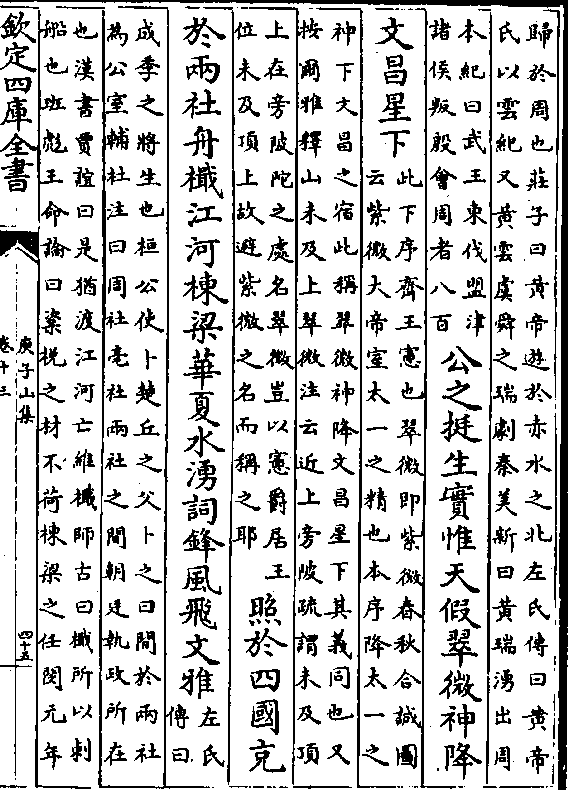 歸於周也莊子曰黃帝遊於赤水之北左氏傳曰黃帝
氏以雲紀又黃雲虞舜之瑞劇秦美新曰黃瑞湧出周
本紀曰武王東伐盟津
諸侯叛殷會周者八百
公之挺生實惟天假翠微神降
文昌星下
此下序齊王憲也翠微即紫微春秋合誠圖
云紫微大帝室太一之精也本序降太一之
神下文昌之宿此稱翠微神降文昌星下其義同也又
按爾雅釋山未及上翠微注云近上旁陂疏謂未及頂
上在旁陂陀之處名翠微豈以憲爵居王
位未及頂上故避紫微之名而稱之耶
照於四國克
於兩社舟檝江河棟梁華夏水湧詞鋒風飛文雅
左氏
傳曰
成季之將生也桓公使卜楚丘之父卜之曰間於兩社
為公室輔社注曰周社亳社兩社之間朝廷執政所在
也漢書賈誼曰是猶渡江河亡維檝師古曰檝所以刺
船也班彪王命論曰楶梲之材不荷棟梁之任閔元年
欽定四庫全書
庾子山集
卷十三
四十五